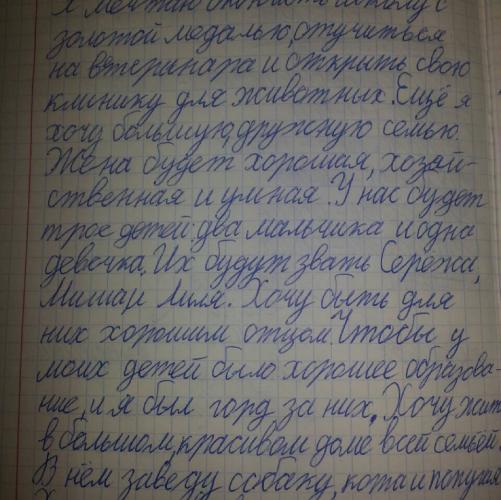 Я мечтаю окончить школу с
золотой медалью, отучиться
на ветеринара и открыть свою
клинику для животных. Ещё я
хочу большую, дружную семью.
Жена будет хорошая, хозяй-
ственная и умная. У нас будет
трое детей: два мальчика и одна
девочка. Их будут звать Сережа,
Миша и Лиля. Хочу быть для
них хорошим отцом. Чтобы у
моих детей было хорошее образова-
ние, и я был горд за них. Хочу жить
в большом, красивом доме всей семьёй.
В нём заведу собаку, кота и попугая.